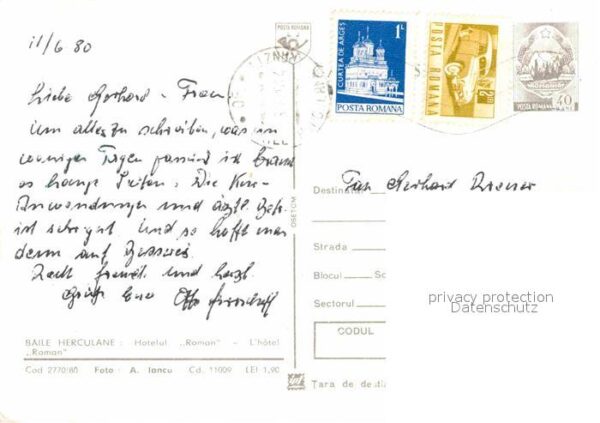 11/6 80
Liebe Gerhard - Franz
Um alles zu schreiben, was in
wenigen Tagen passiert ist braucht
es lange Seiten. Die Kur-
Anwendungen und ärztl. Betr.
ist sehr gut. Und so hofft man
denn auf
Recht freundl. und herzl.
Grüße Euer Otto
BAILE HERCULANE : Hotelul „Roman" - L'hôtel
„Roman"
Cod 2770/80 Foto : A. Iancu Cd. 11009 LEI 1,90
DSETOM
POSTA ROMANA
1L
CURTEA DE ARGES
POSTA ROMANA
POSTA ROMANA
POSTA ROMANA 40
Fam Gerhard
Destinatar
Strada
Blocul Sc
Sectorul
CODUL
Ţara de desti
privacy protection
Datenschutz